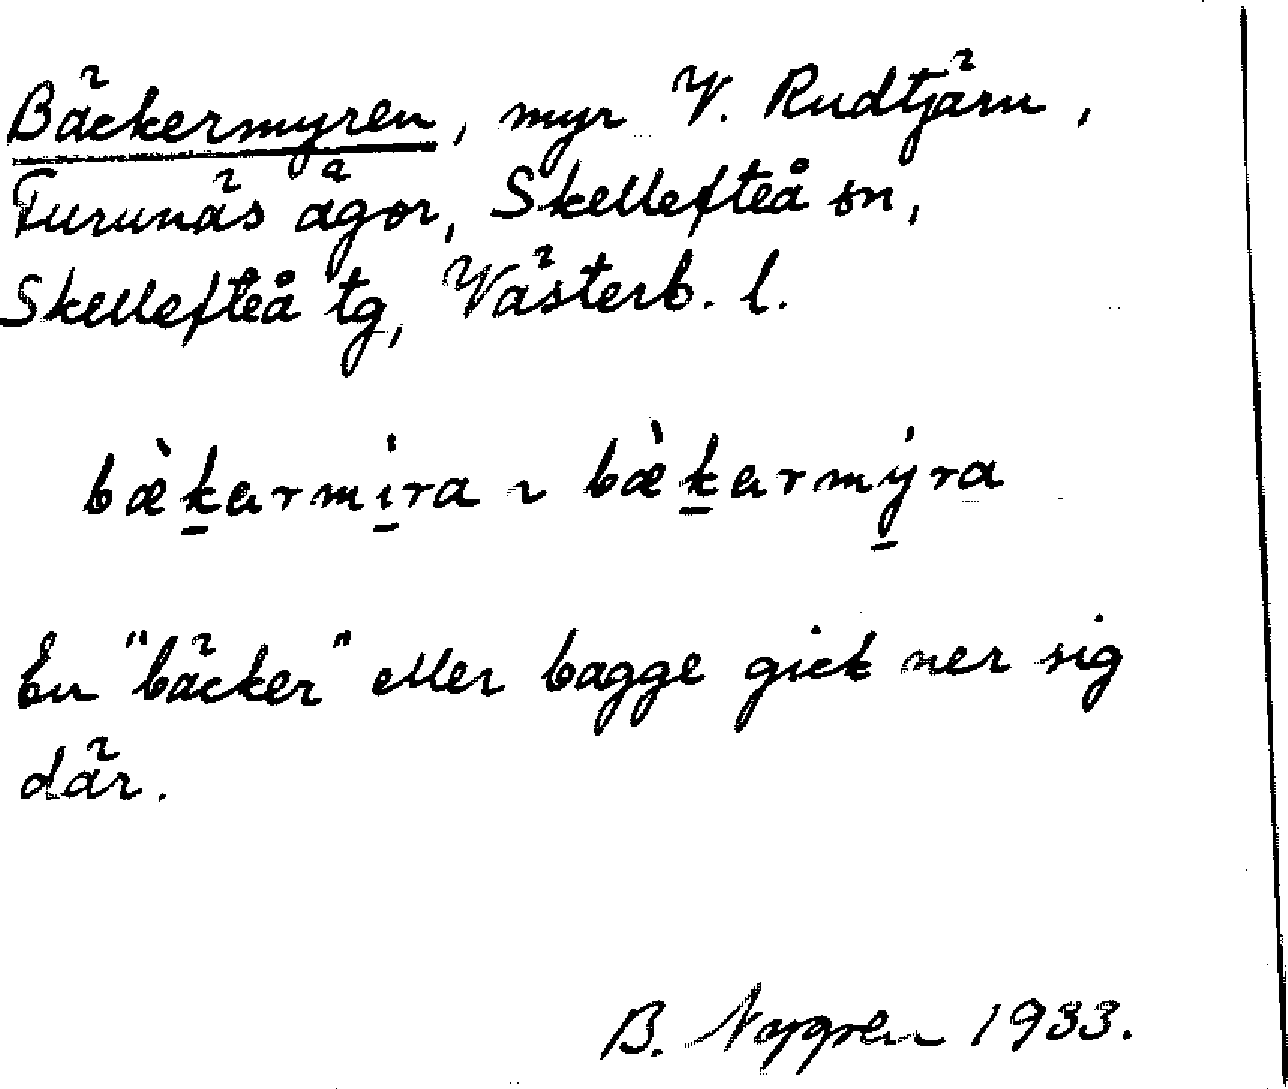 Bäckermyren, myr V. Rudtjärn,
Furunäs ägor, Skellefteå sn,
Skellefteå tg, Västerb. l.
bæ̀k̲ermi̲ra ~ bæ̀k̲ermy̲ra
En "bäcker" eller bagge gick ner sig
där.
B. Nygren 1933.